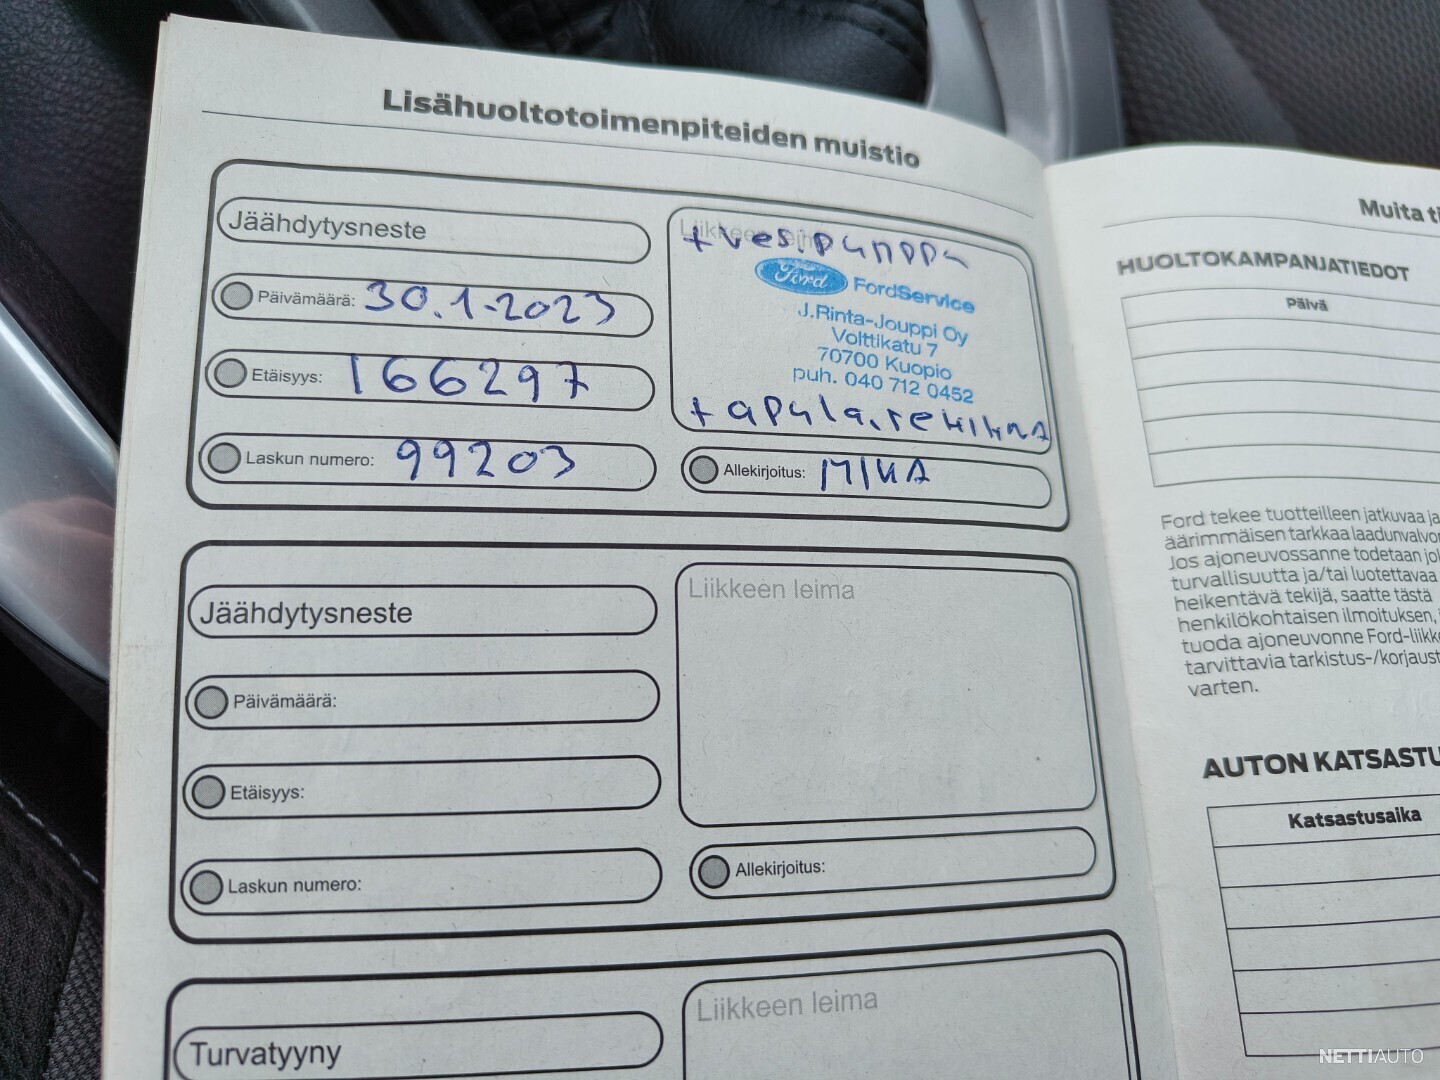 Lisähuoltotoimenpiteiden muistio
Jäähdytysneste
Päivämäärä: 30.1.2023
Etäisyys: 166297
Laskun numero: 99203
Liikkeen leima
+ vesipumppu
Ford FordService
J.Rinta-Jouppi Oy
Volttikatu 7
70700 Kuopio
puh. 040 712 0452
+ apulai.rehihna
Allekirjoitus: MIKA
Jäähdytysneste
Päivämäärä:
Etäisyys:
Laskun numero:
Liikkeen leima
Allekirjoitus:
Turvatyyny
Liikkeen leima
Muita ti
HUOLTOKAMPANJATIEDOT
Päivä
Ford tekee tuotteilleen jatkuvaa ja
äärimmäisen tarkkaa laadunvalvon
Jos ajoneuvossanne todetaan jok
turvallisuutta ja/tai luotettavaa
heikentävä tekijä, saatte tästä
henkilökohtaisen ilmoituksen,
tuoda ajoneuvonne Ford-liikke
tarvittavia tarkistus-/korjaust
varten.
AUTON KATSASTU
Katsastusaika
NETTIAUTO